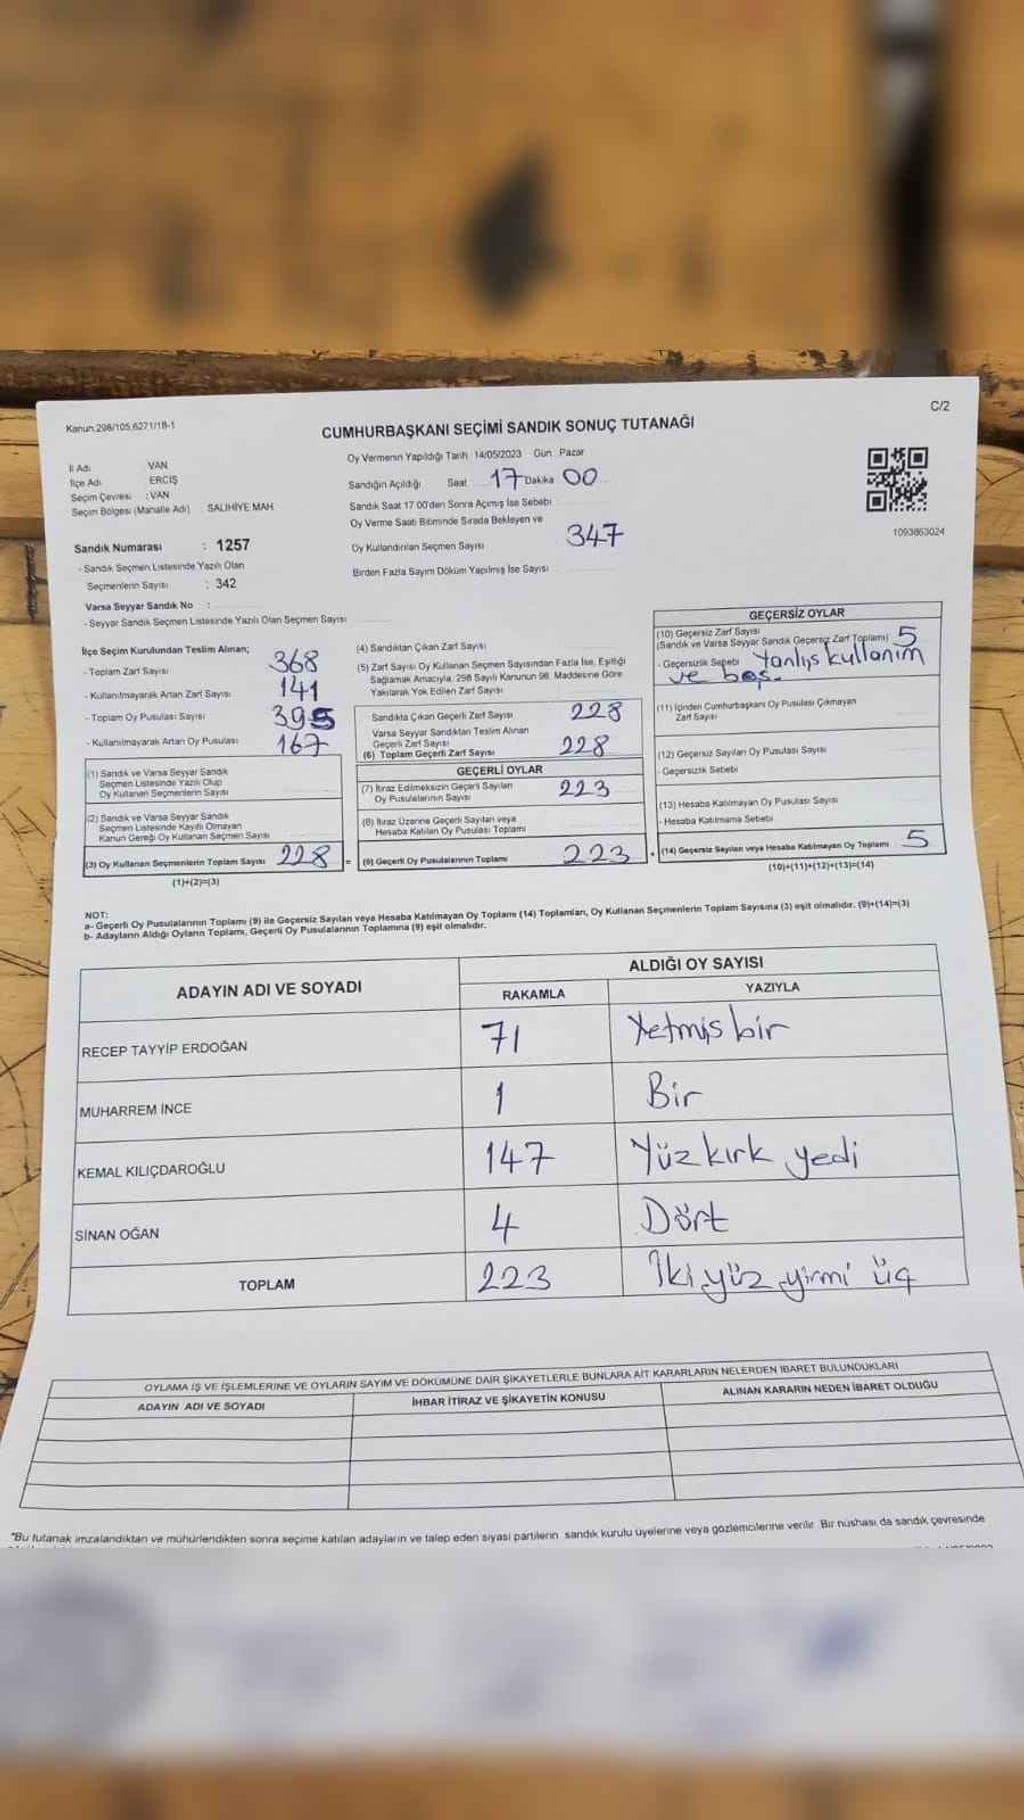 Kanun:298/105,6271/18-1
C/2
CUMHURBAŞKANI SEÇİMİ SANDIK SONUÇ TUTANAĞI
İl Adı VAN
İlçe Adı ERCİŞ
Seçim Çevresi : VAN
Seçim Bölgesi (Mahalle Adı) SALİHİYE MAH
Oy Vermenin Yapıldığı Tarih 14/05/2023 Gün Pazar
Sandığın Açıldığı Saat 17 Dakika 00
Sandık Saat 17 00'den Sonra Açımış İse Sebebi
Oy Verme Saati Bitiminde Sırada Bekleyen ve
Oy Kullandırılan Seçmen Sayısı 347
Birden Fazla Sayım Döküm Yapılmış İse Sayısı
1093863024
Sandık Numarası : 1257
- Sandık Seçmen Listesinde Yazılı Olan
Seçmenlerin Sayısı : 342
Varsa Seyyar Sandık No :
- Seyyar Sandık Seçmen Listesinde Yazılı Olan Seçmen Sayısı
İlçe Seçim Kurulundan Teslim Alınan;
- Toplam Zarf Sayısı 368
- Kullanılmayarak Artan Zarf Sayısı 141
- Toplam Oy Pusulası Sayısı 395
- Kullanılmayarak Artan Oy Pusulası 167
(1) Sandık ve Varsa Seyyar Sandık
Seçmen Listesinde Yazılı Olup
Oy Kullanan Seçmenlerin Sayısı
(2) Sandık ve Varsa Seyyar Sandık
Seçmen Listesinde Kayıtlı Olmayan
Kanun Gereği Oy Kullanan Seçmen Sayısı
(3) Oy Kullanan Seçmenlerin Toplam Sayısı 228
(1)+(2)=(3)
(4) Sandıktan Çıkan Zarf Sayısı
(5) Zarf Sayısı Oy Kullanan Seçmen Sayısından Fazla İse, Eşitliği
Sağlamak Amacıyla, 298 Sayılı Kanunun 98. Maddesine Göre
Yakılarak Yok Edilen Zarf Sayısı
Sandıkta Çıkan Geçerli Zarf Sayısı 228
Varsa Seyyar Sandıktan Teslim Alınan
Geçerli Zarf Sayısı
(6) Toplam Geçerli Zarf Sayısı 228
GEÇERLİ OYLAR
(7) İtiraz Edilmeksizin Geçerli Sayılan
Oy Pusulalarının Sayısı 223
(8) İtiraz Üzerine Geçerli Sayılan veya
Hesaba Katılan Oy Pusulası Toplamı
= (9) Geçerli Oy Pusulalarının Toplamı 223
GEÇERSİZ OYLAR
(10) Geçersiz Zarf Sayısı
(Sandık ve Varsa Seyyar Sandık Geçersiz Zarf Toplamı) 5
- Geçersizlik Sebebi Yanlış kullanım
ve boş.
(11) İçinden Cumhurbaşkanı Oy Pusulası Çıkmayan
Zarf Sayısı
(12) Geçersiz Sayılan Oy Pusulası Sayısı
- Geçersizlik Sebebi
(13) Hesaba Katılmayan Oy Pusulası Sayısı
- Hesaba Katılmama Sebebi
(14) Geçersiz Sayılan veya Hesaba Katılmayan Oy Toplamı 5
(10)+(11)+(12)+(13)=(14)
NOT:
a- Geçerli Oy Pusulalarının Toplamı (9) ile Geçersiz Sayılan veya Hesaba Katılmayan Oy Toplamı (14) Toplamları, Oy Kullanan Seçmenlerin Toplam Sayısına (3) eşit olmalıdır. (9)+(14)=(3)
b- Adayların Aldığı Oyların Toplamı, Geçerli Oy Pusulalarının Toplamına (9) eşit olmalıdır.
ADAYIN ADI VE SOYADI
ALDIĞI OY SAYISI
RAKAMLA YAZIYLA
RECEP TAYYİP ERDOĞAN 71 Yetmiş bir
MUHARREM İNCE 1 Bir
KEMAL KILIÇDAROĞLU 147 Yüz kırk yedi
SİNAN OĞAN 4 Dört
TOPLAM 223 İki yüz yirmi üç
OYLAMA İŞ VE İŞLEMLERİNE VE OYLARIN SAYIM VE DÖKÜMÜNE DAİR ŞİKAYETLERLE BUNLARA AİT KARARLARIN NELERDEN İBARET BULUNDUKLARI
ADAYIN ADI VE SOYADI İHBAR İTİRAZ VE ŞİKAYETİN KONUSU ALINAN KARARIN NEDEN İBARET OLDUĞU
"Bu tutanak imzalandıktan ve mühürlendikten sonra seçime katılan adayların ve talep eden siyasi partilerin sandık kurulu üyelerine veya gözlemcilerine verilir Bir nüshası da sandık çevresinde